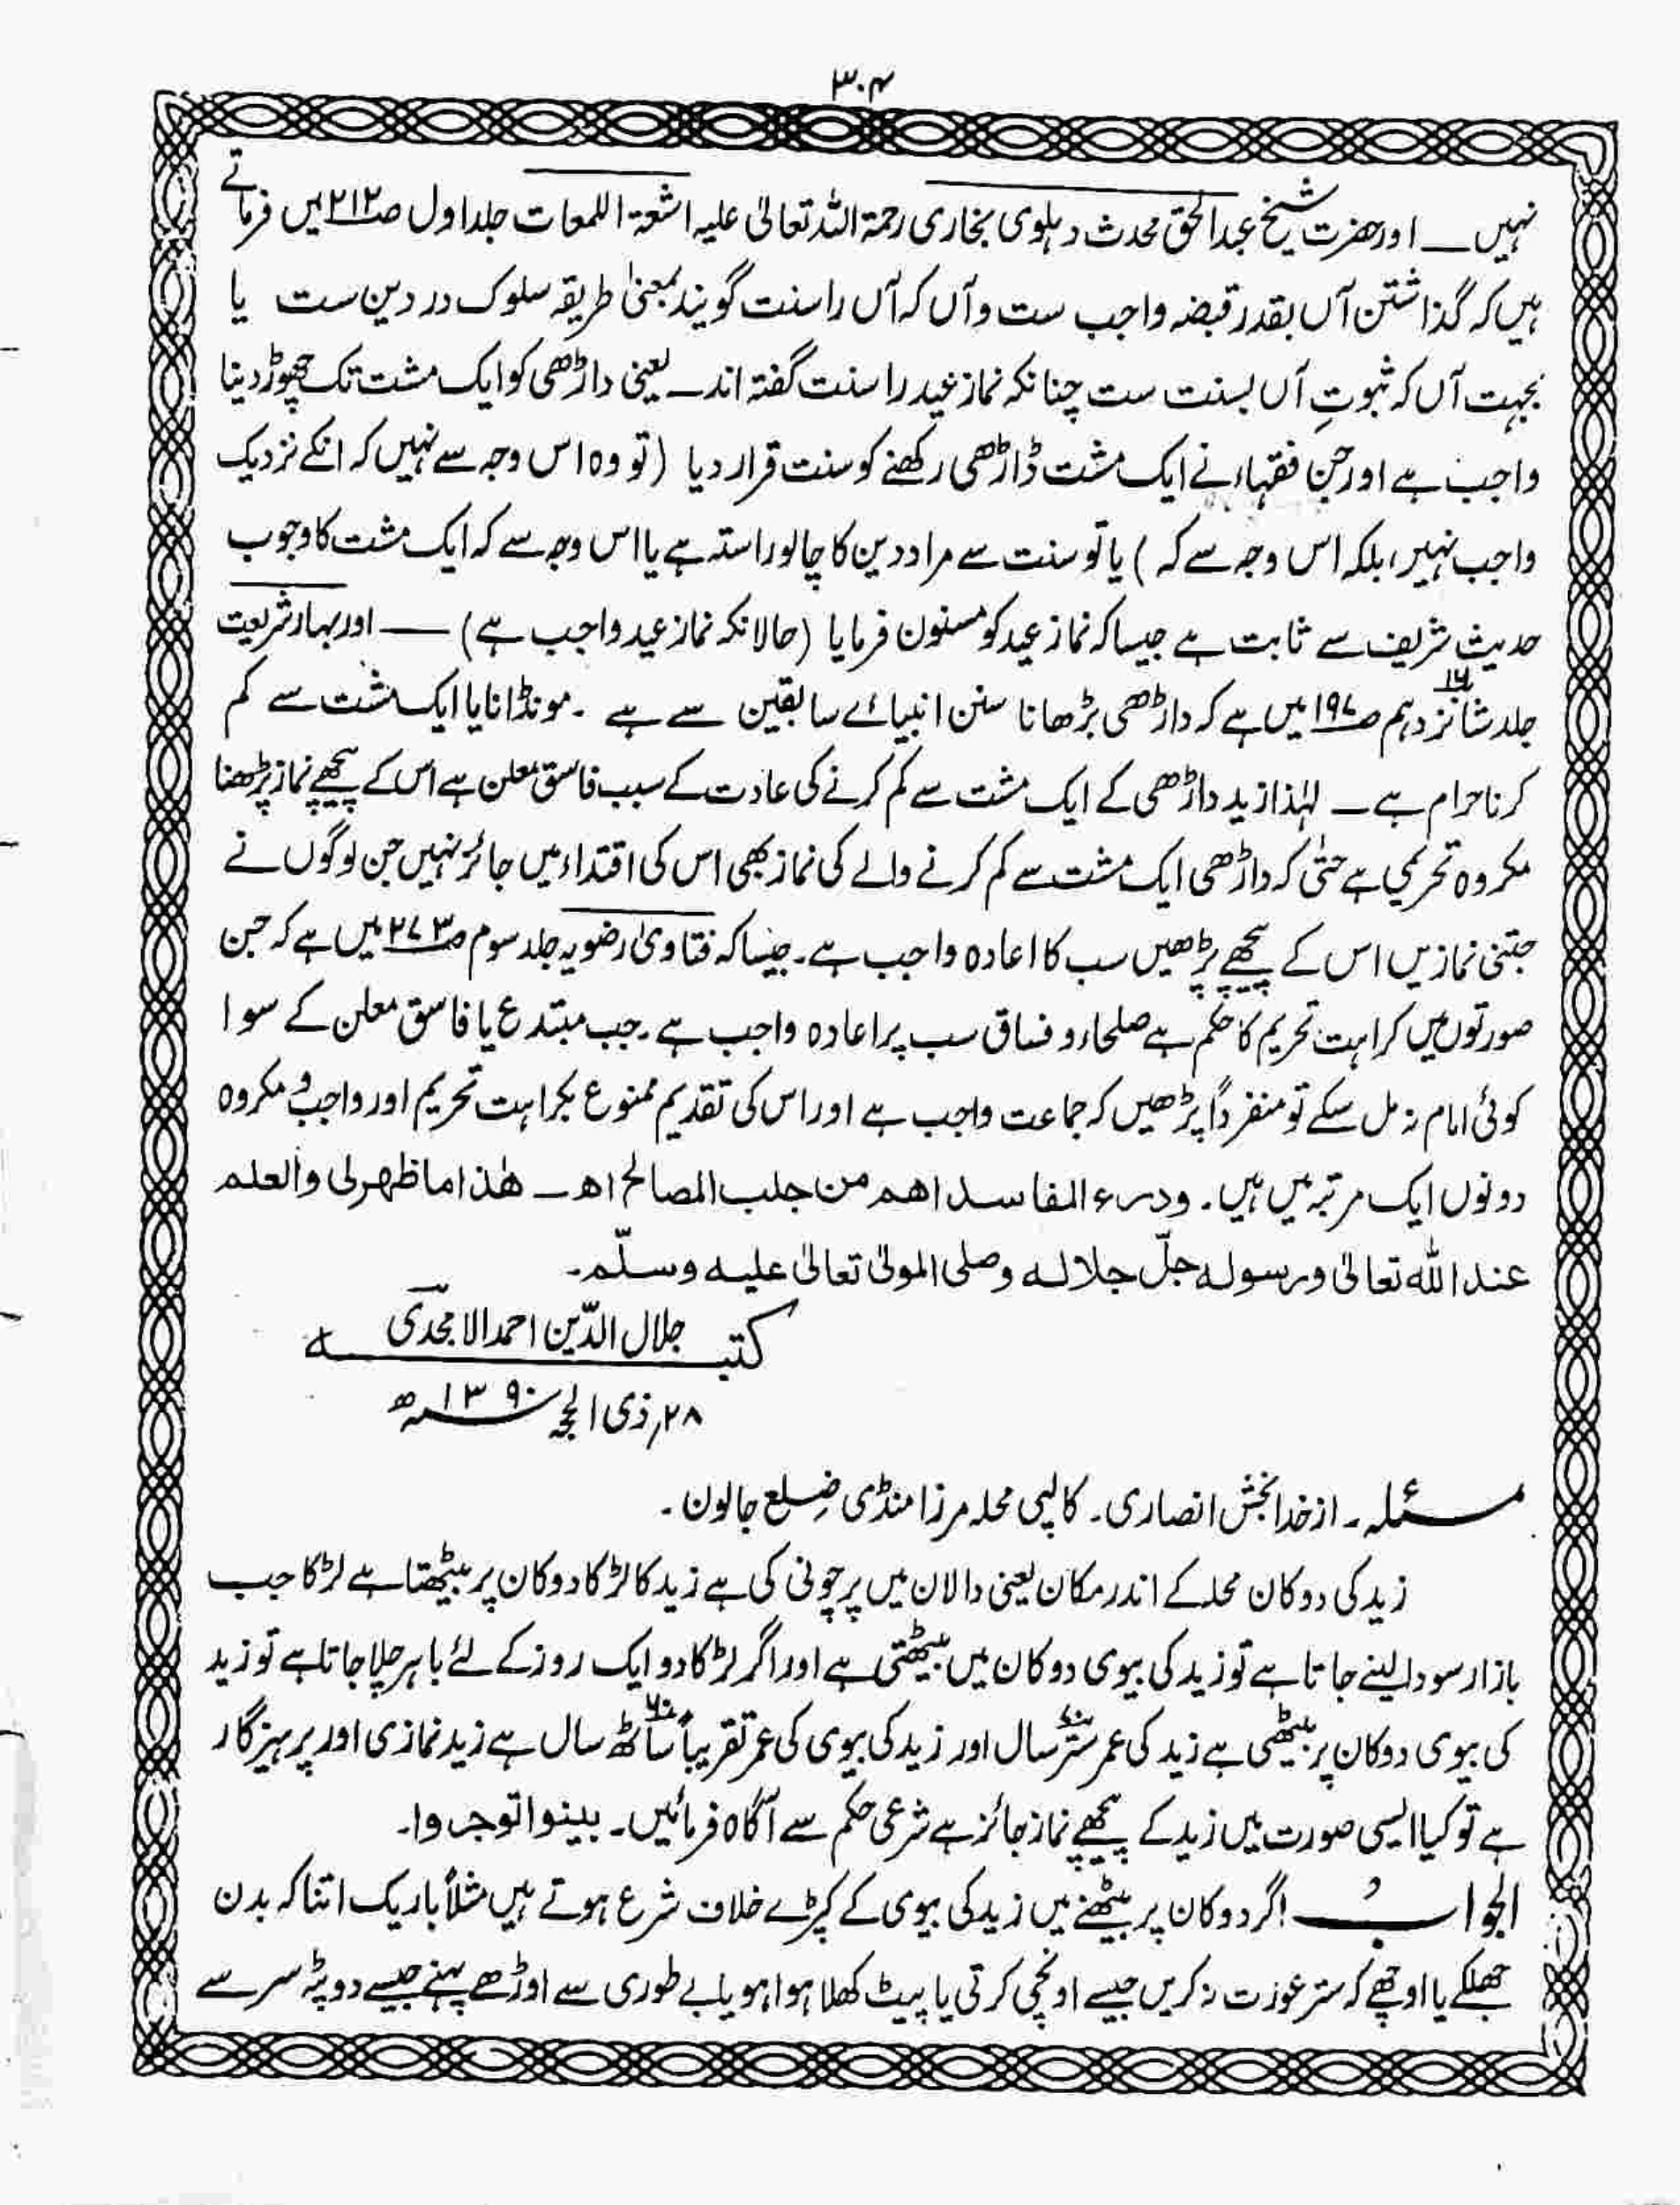 ۳۰۴
نہیں ــ اور حضرت شیخ عبدالحق محدث دہلوی بخاری رحمۃ اللہ تعالیٰ علیہ اشعۃ اللمعات جلد اول ص۲۱۲ میں فرماتے
ہیں کہ گذاشتن آں بقدر قبضہ واجب ست و آں کہ آں را سنت گویند بمعنیٰ طریقہ سلوک در دین ست یا
بجہت آں کہ ثبوتِ آں بسنت ست چنانکہ نماز عید را سنت گفتہ اند ــ یعنی داڑھی کو ایک مشت تک چھوڑ دینا
واجب ہے اور جن فقہاء نے ایک مشت ڈاڑھی رکھنے کو سنت قرار دیا (تو وہ اس وجہ سے نہیں کہ انکے نزدیک
واجب نہیں، بلکہ اس وجہ سے کہ ) یا تو سنت سے مراد دین کا چالو راستہ ہے یا اس وجہ سے کہ ایک مشت کا وجوب
حدیث شریف سے ثابت ہے جیسا کہ نماز عید کو مسنون فرمایا (حالانکہ نماز عید واجب ہے) ـــ اور بہار شریعت
جلد شانزدہم ۱۶ ص۱۹۷ میں ہے کہ داڑھی بڑھانا سنن انبیائے سابقین سے ہے ۔ مونڈانا یا ایک مشت سے کم
کرنا حرام ہے ــ لہٰذا زید داڑھی کے ایک مشت سے کم کرنے کی عادت کے سبب فاسق معلن ہے اس کے پیچھے نماز پڑھنا
مکروہ تحریمی ہے حتیٰ کہ داڑھی ایک مشت سے کم کرنے والے کی نماز بھی اس کی اقتداء میں جائز نہیں جن لوگوں نے
جتنی نمازیں اس کے پیچھے پڑھیں سب کا اعادہ واجب ہے۔ جیسا کہ فتاویٰ رضویہ جلد سوم ص۲۷۳ میں ہے کہ جن
صورتوں میں کراہت تحریم کا حکم ہے صلحاء و فساق سب پر اعادہ واجب ہے ۔ جب مبتدع یا فاسق معلن کے سوا
کوئی امام نہ مل سکے تو منفرداً پڑھیں کہ جماعت واجب ہے اور اس کی تقدیم ممنوع بکراہت تحریم اور واجب و مکروہ
دونوں ایک مرتبہ میں ہیں۔ ودرء المفاسد اھم من جلب المصالح اھ ــ ھٰذا ما ظھر لی والعلم
عند اللہ تعالیٰ ورسولہ جلّ جلالہ وصلی المولیٰ تعالیٰ علیہ وسلّم۔
کتبہ جلال الدّین احمد الامجدی
۲۸؍ ذی الحجہ ۱۳۹۰ھ
مسئلہ ۔ از خدا بخش انصاری۔ کالپی محلہ مرزا منڈی ضلع جالون ۔
زید کی دوکان محلہ کے اندر مکان یعنی دالان میں پرچونی کی ہے زید کا لڑکا دوکان پر بیٹھتا ہے لڑکا جب
بازار سودا لینے جاتا ہے تو زید کی بیوی دوکان میں بیٹھتی ہے اور اگر لڑکا دو ایک روز کے لئے باہر چلا جاتا ہے تو زید
کی بیوی دوکان پر بیٹھی ہے زید کی عمر ستر ۷۰ سال اور زید کی بیوی کی عمر تقریباً ساٹھ ۶۰ سال ہے زید نمازی اور پرہیزگار
ہے تو کیا ایسی صورت میں زید کے پیچھے نماز جائز ہے شرعی حکم سے آگاہ فرمائیں۔ بینوا توجروا۔
الجواب ـــ اگر دوکان پر بیٹھنے میں زید کی بیوی کے کپڑے خلاف شرع ہوتے ہیں مثلاً باریک اتنا کہ بدن
جھلکے یا اوچھے کہ ستر عورت نہ کریں جیسے اونچی کرتی یا پیٹ کھلا ہوا ہو یا بے طوری سے اوڑھے پہنے جیسے دوپٹہ سر سے